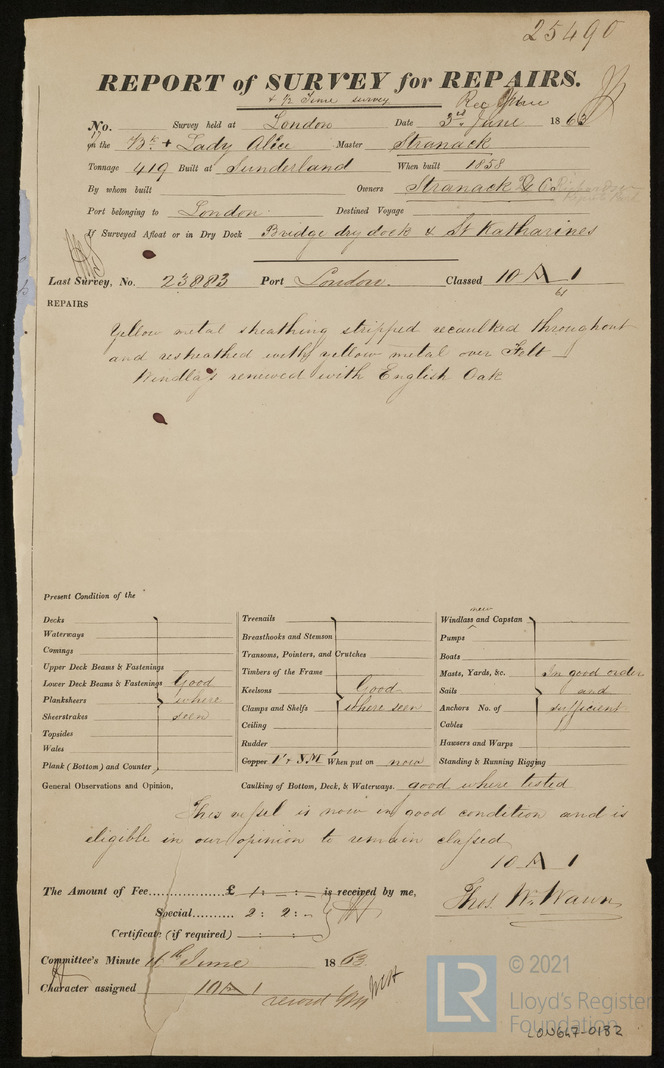 25490
REPORT of SURVEY for REPAIRS.
& ½ Time survey
No. Survey held at London Date 3rd June 1863
on the Bk Lady Alice Master Stranack
Tonnage 419 Built at Sunderland When built 1858
By whom built Owners Stranack & Co
Port belonging to London Destined Voyage
If Surveyed Afloat or in Dry Dock Bridge dry dock & St Katharines
Last Survey, No. 23883 Port London. Classed 10 A 1
61
REPAIRS
Yellow metal sheathing stripped recaulked throughout
and resheathed with yellow metal over Felt
Windlass renewed with English Oak
Present Condition of the
Decks
Waterways
Comings
Upper Deck Beams & Fastenings
Lower Deck Beams & Fastenings Good
Planksheers where
Sheerstrakes seen
Topsides
Wales
Plank (Bottom) and Counter
Treenails
Breasthooks and Stemson
Transoms, Pointers, and Crutches
Timbers of the Frame
Keelsons Good
Clamps and Shelfs where seen
Ceiling
Rudder
Copper Y. M. When put on now
new
Windlass and Capstan
Pumps
Boats
Masts, Yards, &c. In good order
Sails and
Anchors No. of sufficient
Cables
Hawsers and Warps
Standing & Running Rigging
General Observations and Opinion, Caulking of Bottom, Deck, & Waterways. good where tested
This vessel is now in good condition and is
eligible in our opinion to remain classed
10 A 1
The Amount of Fee............... £ 1 : - : - is received by me,
Special.......... 2 : 2 : -
Certificate (if required) : :
Thos. W. Wawn
Committee's Minute 11th June 1863
Character assigned 10 A 1
record
LR © 2021
Lloyd's Register
Foundation
LON647-0182